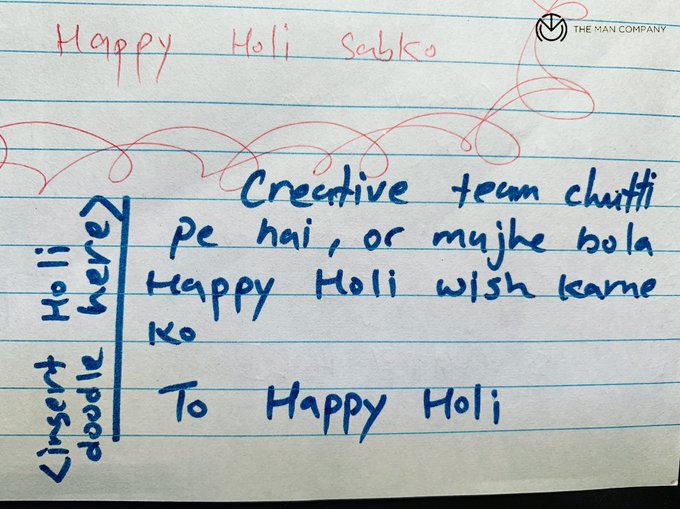 Happy Holi Sabko
THE MAN COMPANY
Creative team chutti
pe hai, or mujhe bola
Happy Holi wish karne
ko
To Happy Holi
<insert Holi
doodle here>